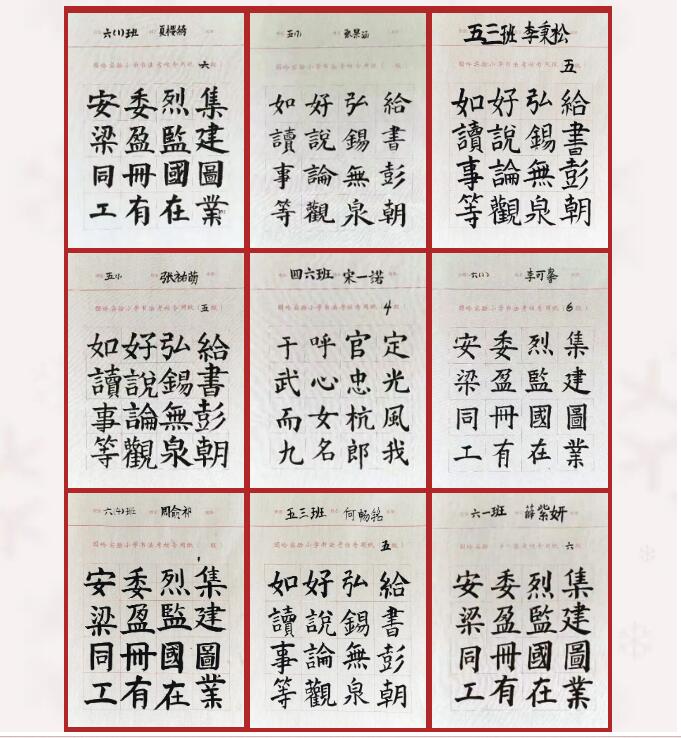 六(1)班 夏樱绮
六
集建圖業
烈監國在
委盈冊有
安梁同工
給書彭朝
弘錫無泉
好說論觀
如讀事等
五三班 李秉松
五
給書彭朝
弘錫無泉
好說論觀
如讀事等
张祐萌
五
給書彭朝
弘錫無泉
好說論觀
如讀事等
四六班 宋一诺
4
定光風我
官忠杭郎
呼心女名
于武而九
六(1) 李可馨
6
集建圖業
烈監國在
委盈冊有
安梁同工
六(4)班
集建圖業
烈監國在
委盈冊有
安梁同工
五三班 何畅铭
五
給書彭朝
弘錫無泉
好說論觀
如讀事等
六一班 薛紫妍
六
集建圖業
烈監國在
委盈冊有
安梁同工